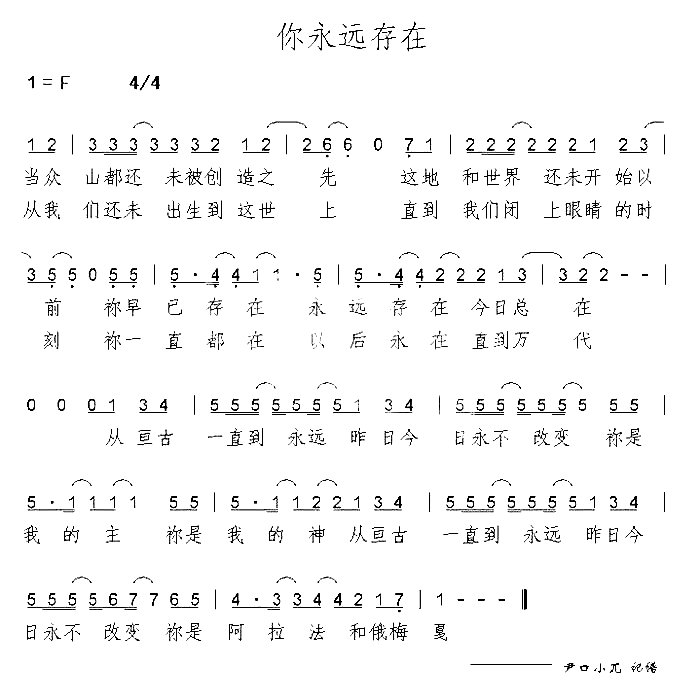 你永远存在
1 = F 4/4
12 | 333333332 12 | 266 0 71 | 2222222221 23 |
当众 山都还 未被创 造之 先 这地 和世界 还未开 始以
从我 们还未 出生到 这世 上 直到 我们闭 上眼睛 的时
355 055 | 5·4411·5 | 5·44222113 | 322 - - |
前 祢早 已 存在 永 远存在今日总 在
刻 祢一 直 都在 以 后永在直到万 代
0 0 01 34 | 55555551 34 | 55555555 55 |
从亘古 一直到 永远 昨日今 日永不 改变 祢是
5·1111 55 | 5·11221 34 | 555555551 34 |
我 的 主 祢是 我 的 神 从亘古 一直到 永远 昨日今
5555677 65 | 4·3344217 | 1 - - - ‖
日永不 改变 祢是 阿 拉 法 和俄梅 戛